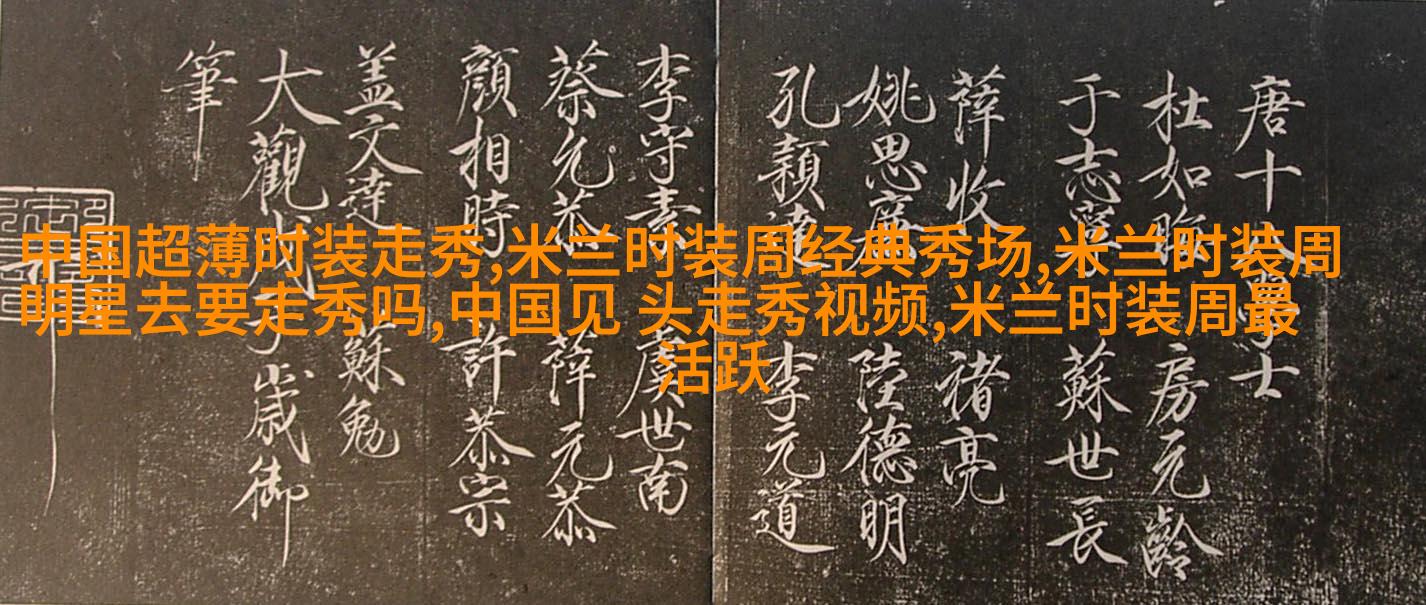 中国超薄时装走秀,米兰时装周经典秀场,米兰时装周
明星去要走秀吗,中国见 头走秀视频,米兰时装周最
活跃
唐十八學士
杜如晦 房元齡
于志寧 蘇世長
薛收 褚亮
姚思廉 陸德明
孔穎達 李元道
李守素 虞世南
蔡允恭 薛元恭
顏相時 許恭宗
盖文達 蘇勉
大觀戊子歲御
筆